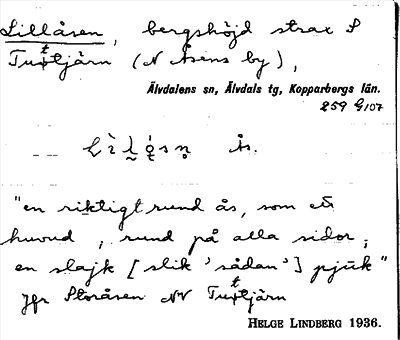 Lillåsen, bergshöjd strax S
Tuttjärn (N Åsens by),
Älvdalens sn, Älvdals tg, Kopparbergs län.
259 G107
Ås.
"en riktigt rund ås, som ett
huvud, rund på alla sidor,
en slajk [slik 'sådan'] pjuk"
Jfr Storåsen NV Tuttjärn
HELGE LINDBERG 1936.